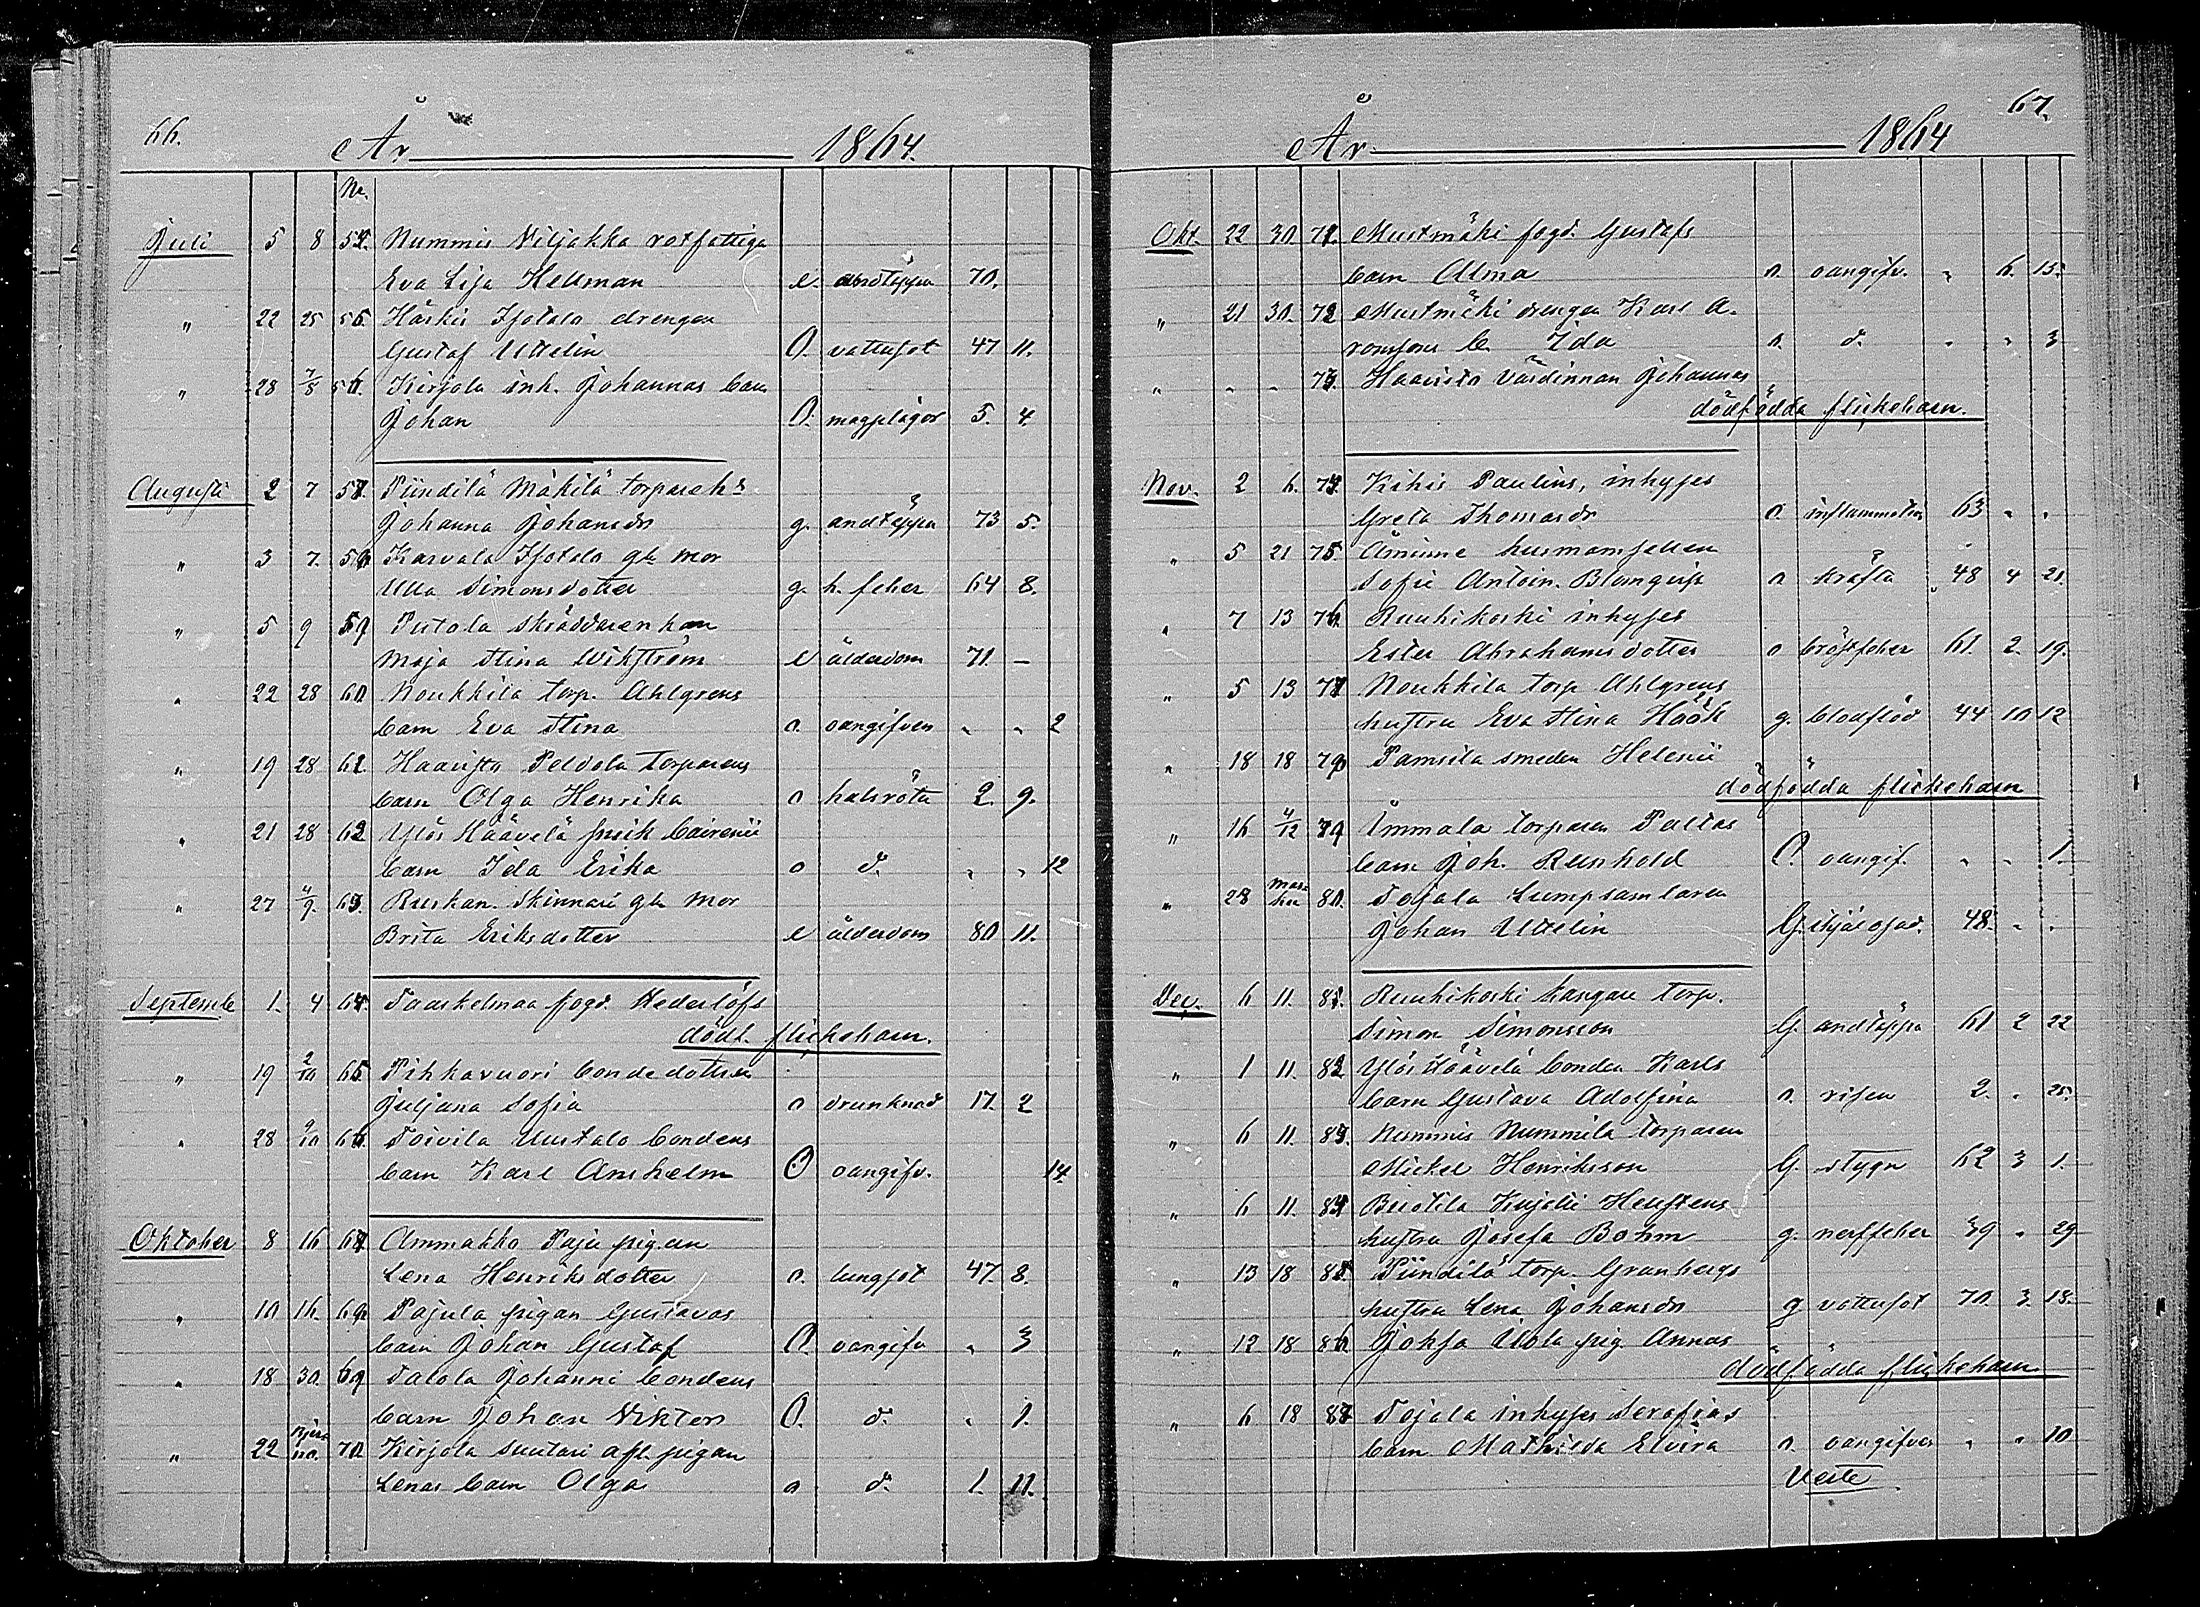 66.
År 1864.
No.
Juli 5 8 54. Nummis Viljakka rotfattiga
Eva Lisa Hellman e. andtäppa 70.
" 22 25 55. Härkis Isotalo drengen
Gustaf Uttelin O. vattusot 47 11.
" 28 7/8 56. Kirjola inh. Johannas barn
Johan O. magplågor 5. 4.
Augusti 2 7 57. Piindilä Mäkilä torpareks
Johanna Johansdr g. andtäppa 73 5.
" 3 7. 58 Karvala Isotalo gb. mor
Ulla Simonsdotter g. h. feber 64 8.
" 5 9 59 Putola skräddarenkan
Maja Stina Wikström e ålderdom 71. –
" 22 28 60. Noukkila torp. Ahlgrens
barn Eva Stina o. oangifven " " 2
" 19 28 61. Haavisto Peldola torparens
barn Olga Henrika o halsröta 2. 9.
" 21 28 62 Ylös Häävelä
barn Ida Erika o d. " " 12
" 27 4/9. 63. Ruskan Skinnari gb mor
Brita Eriksdotter e ålderdom 80 11.
Septemb 1. 4 64. Taaskelmaa fogd. Hederlöfs
dödf. flickebarn.
" 19 2/10 65. Pihkavuori bondedottern
Juljana Sofia o drunknad 17. 2
" 28 9/10 66. Toivila Uustalo bondens
barn Karl Anshelm O oangifv. 14.
Oktober 8 16 67 Ammakko Paja pigan
Lena Henriksdotter o. lungsot 47. 8.
" 10 16. 68 Pajula pigan Gustavas
barn Johan Gustaf O. oangifv " 3
" 18 30. 69 Talola Johanni bondens
barn Johan Viktor O. d. " 1.
" 22 70 Kirjola Suutari afl. pigan
Lenas barn Olga o d. 1. 11.
67.
År 1864
Okt. 22 30 71. Mustmäki fogd. Gustafs
barn Alma o. oangifv. " 6. 15.
" 21 30. 72 Mustmäki drengen Karl A-
ronsons b. Ida o. d. " " 3
" " " 73. Haavisto värdinnan Johannas
dödfödda flickebarn.
Nov. 2 6. 74. Kihis Paulins, inhyses
Greta Thomasdr o. inflammation 63 " "
" 5 21 75. Åminne husmamsellen
Sofie Antoin. Blomqvist o kräfta 48 4 21.
" 7 13 76. Ruuhikoski inhyses
Ester Abrahamsdotter o bröstfeber 61. 2. 19.
" 5 13 77 Noukkila torp Ahlgrens
hustru Eva Stina Höök g. blodflöd 44 10 12
" 18 18 78 Pamsila smeden Helenii
dödfödda flickebarn
" 16 4/12 79 Ämmala torparen Paltas
barn Joh. Reinhold O. oangif. " " 1.
" 28 80. Tojala Lumpsamlaren
Johan Uttelin G. ihjälofad. 48. " "
Dec. 6 11. 81. Ruuhikoski Kangare torp.
Simon Simonsson G. andtäppa 61 2 22
" 1 11. 82 Ylös Häävelä bonden Karls
barn Gustava Adolfina o. risen 2. " 25.
" 6 11. 83. Nummis Nummila torparen
Mickel Henriksson G. stygn 62 3 1.
" 6 11. 84
hustru Josefa Bohm g. nerffeber 39 " 29
" 13 18 85 Piindilä torp. Granbergs
hustru Lena Johansdr g vattusot 70. 3. 18.
" 12 18 86 Jokja Ulola pig. Annas
dödfödda flickebarn
" 6 18 87 Tojala inhyses Serafias
barn Mathilda Elvira o. oangifven " " 10
Veste